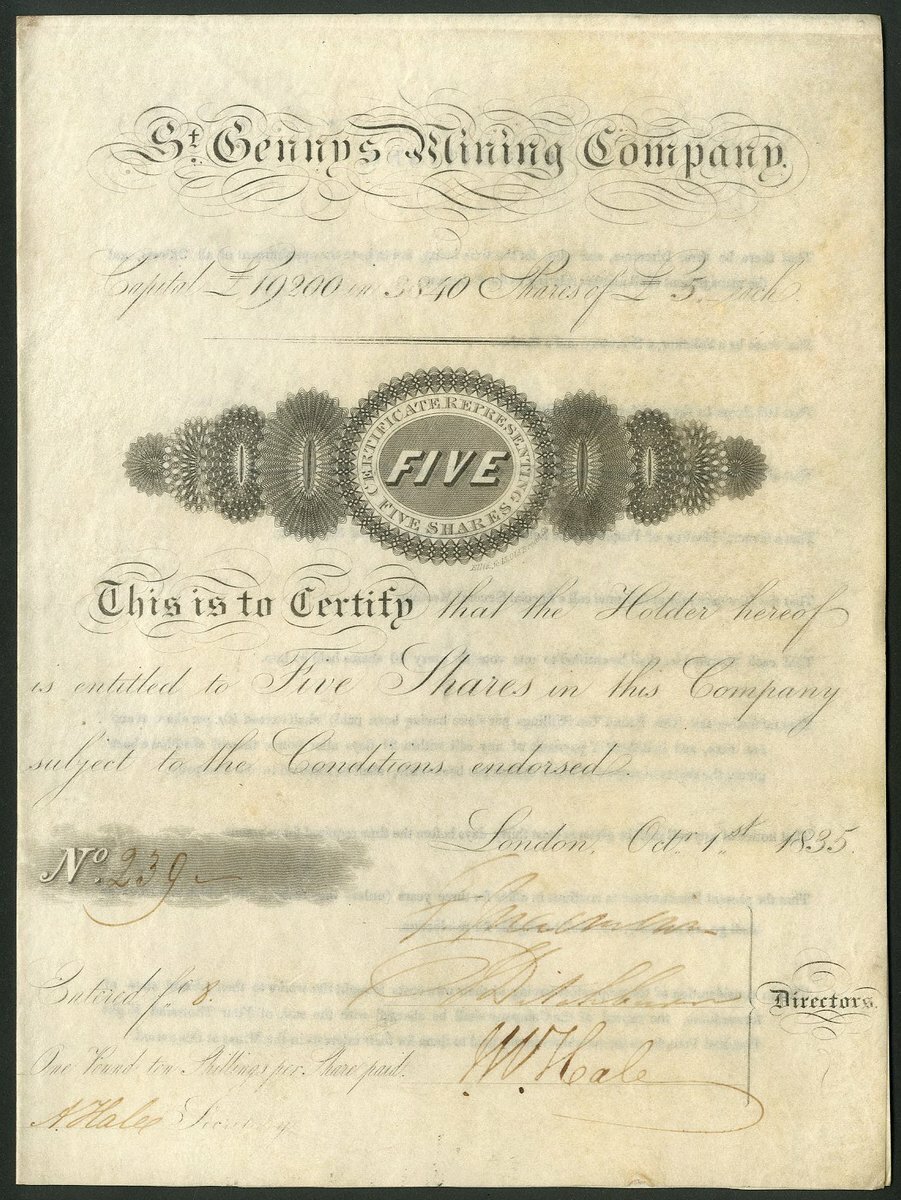 St. Gennys Mining Company.
Capital £19200 in 3840 Shares of £5. each.
CERTIFICATE REPRESENTING
FIVE
FIVE SHARES
This is to Certify that the Holder hereof
is entitled to Five Shares in this Company
subject to the Conditions endorsed.
London, Octr. 1st. 1835.
No. 239
Entered fo. 8.
Directors.
One Pound ten Shillings per Share paid.
W Hale
A. Hale Secretary